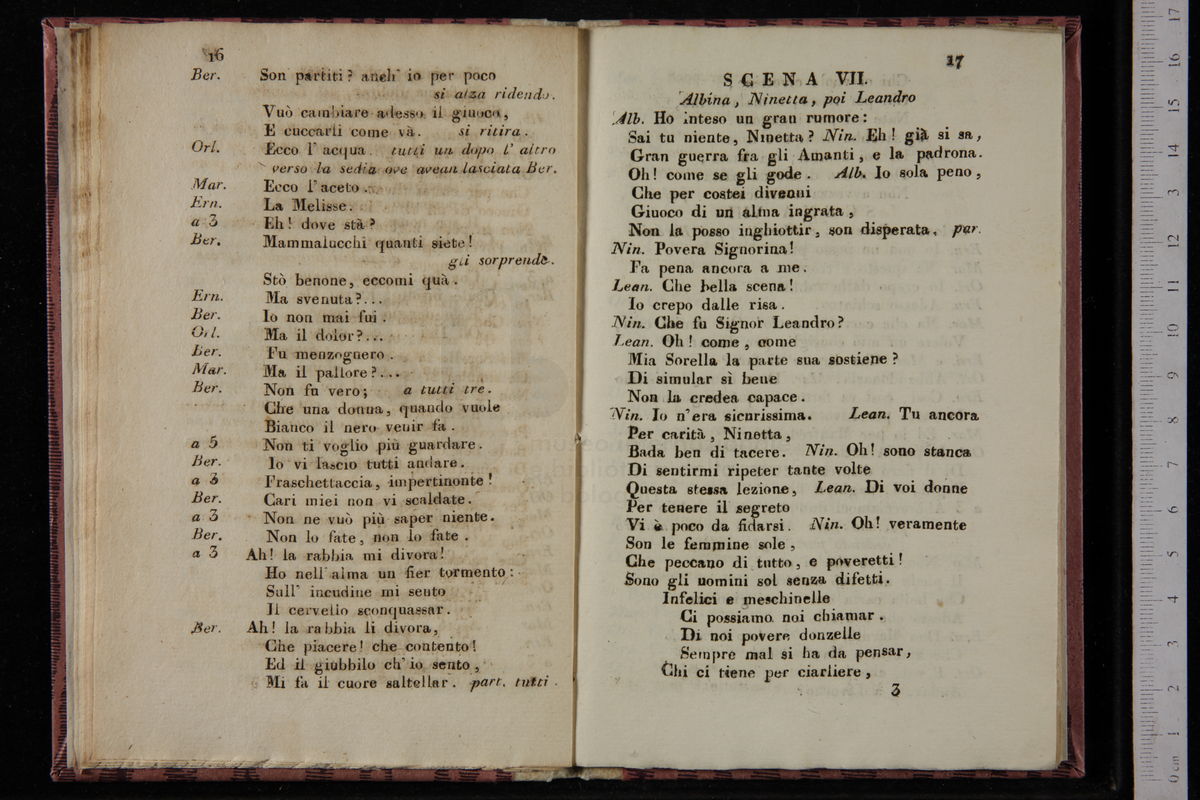 16
Ber. Son partiti? anch' io per poco
si alza ridendo.
Vuò cambiare adesso il giuoco,
E cuccarli come và. si ritira.
Orl. Ecco l' acqua. tutti un dopo l' altro
verso la sedia ove avean lasciata Ber.
Mar. Ecco l' aceto.
Ern. La Melisse.
a 3 Eh! dove stà?
Ber. Mammalucchi quanti siete!
gli sorprende.
Stò benone, eccomi quà.
Ern. Ma svenuta?...
Ber. Io non mai fui.
Orl. Ma il dolor?...
Ber. Fu menzognero.
Mar. Ma il pallore?...
Ber. Non fu vero; a tutti tre.
Che una donna, quando vuole
Bianco il nero venir fa.
a 5 Non ti voglio più guardare.
Ber. Io vi lascio tutti andare.
a 3 Fraschettaccia, impertinonte!
Ber. Cari miei non vi scaldate.
a 3 Non ne vuò più saper niente.
Ber. Non lo fate, non lo fate.
a 3 Ah! la rabbia mi divora!
Ho nell' alma un fier tormento:
Sull' incudine mi sento
Il cervello sconquassar.
Ber. Ah! la rabbia li divora,
Che piacere! che contento!
Ed il giubbilo ch' io sento,
Mi fa il cuore saltellar. part. tutti.
17
SCENA VII.
Albina, Ninetta, poi Leandro
Alb. Ho inteso un gran rumore:
Sai tu niente, Ninetta? Nin. Eh! già si sa,
Gran guerra fra gli Amanti, e la padrona.
Oh! come se gli gode. Alb. Io sola peno,
Che per costei divenni
Giuoco di un alma ingrata,
Non la posso inghiottir, son disperata, par.
Nin. Povera Signorina!
Fa pena ancora a me.
Lean. Che bella scena!
Io crepo dalle risa.
Nin. Che fu Signor Leandro?
Lean. Oh! come, come
Mia Sorella la parte sua sostiene?
Di simular sì bene
Non la credea capace.
Nin. Io n'era sicurissima. Lean. Tu ancora
Per carità, Ninetta,
Bada ben di tacere. Nin. Oh! sono stanca
Di sentirmi ripeter tante volte
Questa stessa lezione, Lean. Di voi donne
Per tenere il segreto
Vi è poco da fidarsi. Nin. Oh! veramente
Son le femmine sole,
Che peccano di tutto, e poveretti!
Sono gli uomini sol senza difetti.
Infelici e meschinelle
Ci possiamo noi chiamar.
Di noi povere donzelle
Sempre mal si ha da pensar,
Chi ci tiene per ciarliere,
3
0 cm 1 2 3 4 5 6 7 8 9 10 11 12 13 14 15 16 17